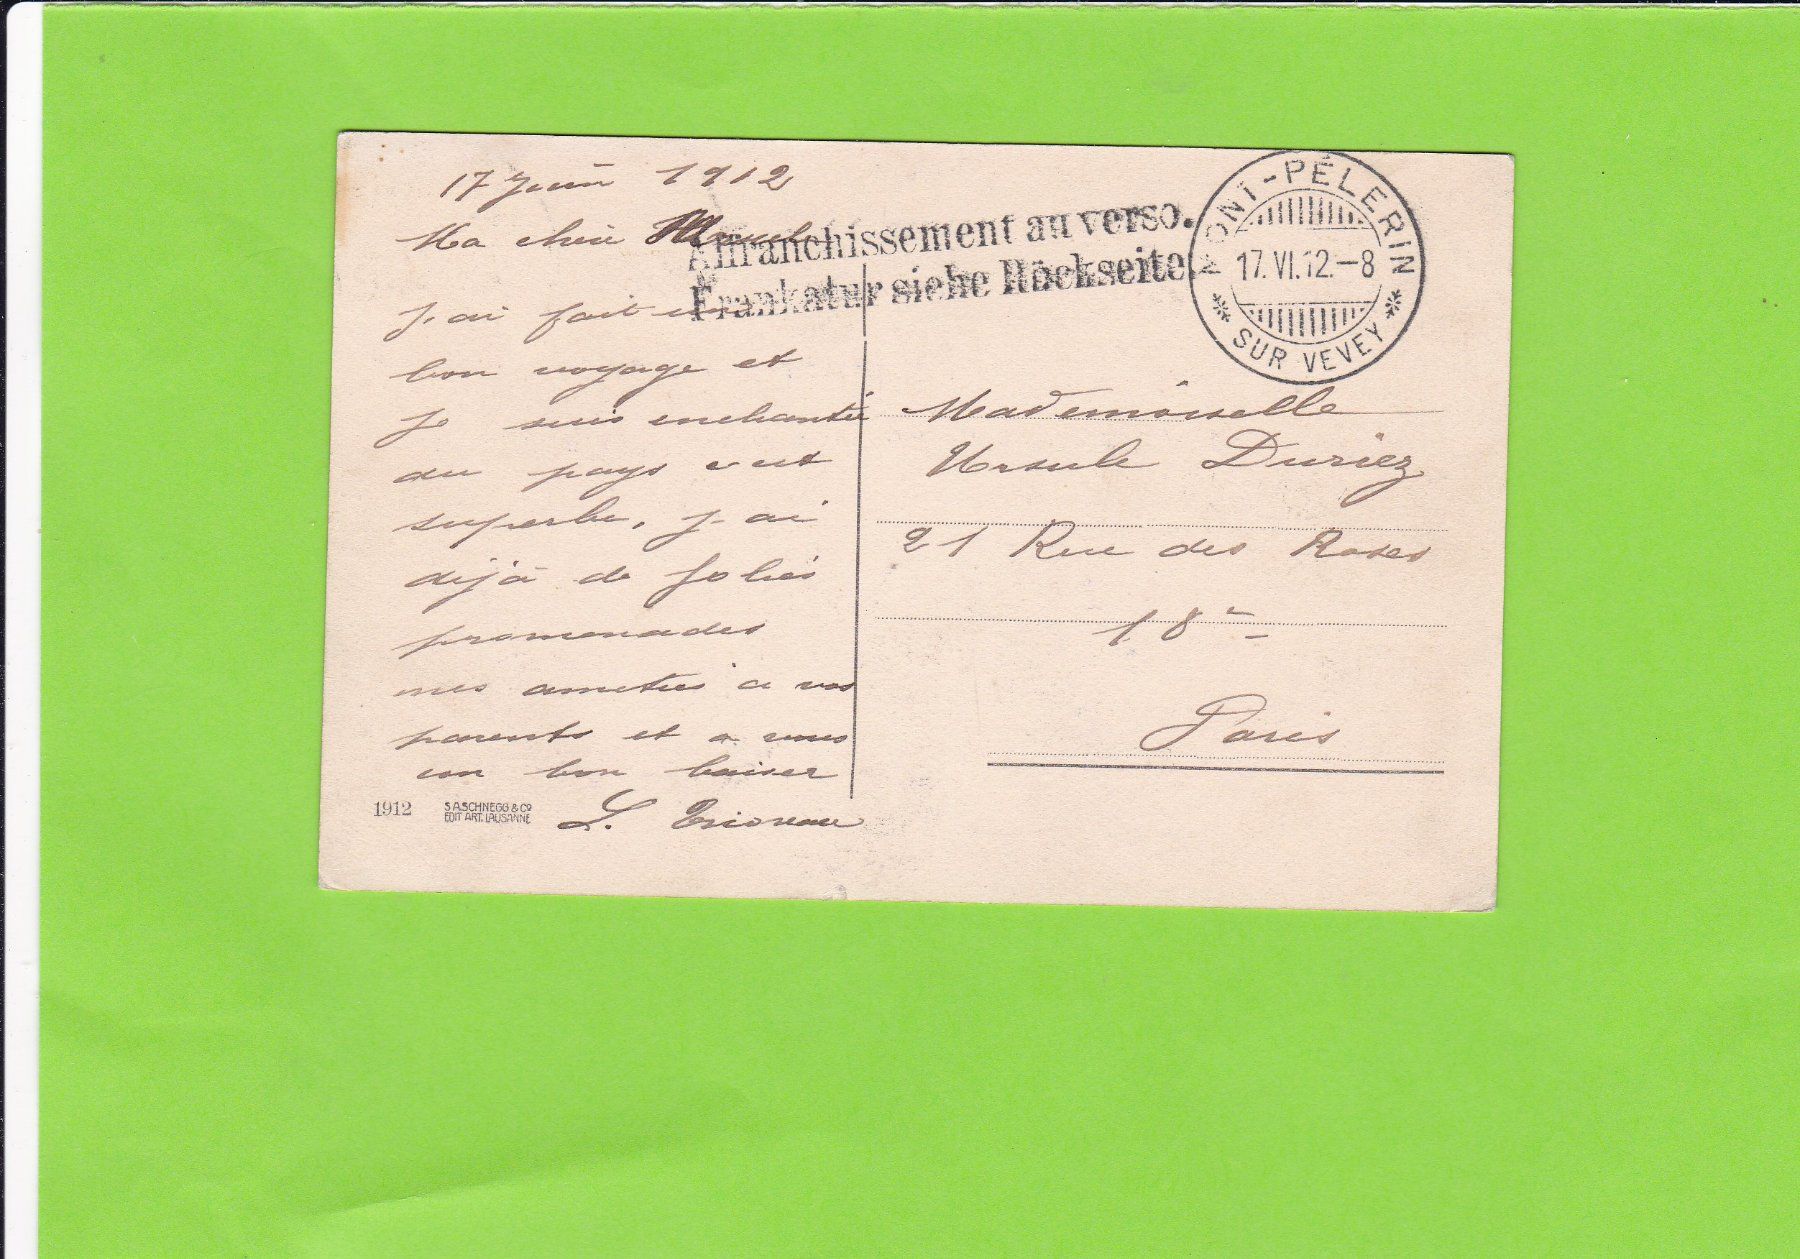 17 Juin 1912
Ma chère
J'ai fait un
bon voyage et
je suis enchantée
du pays c'est
superbe, j'ai
déjà de jolies
promenades
mes amitiés à vos
parents et a vous
un bon baiser
L.
1912
S.A. SCHNEGG & Cº
EDIT ART. LAUSANNE
Affranchissement au verso.
Frankatur siehe Rückseite.
MONT-PÉLERIN
17.VI.12.-8
SUR VEVEY
Mademoiselle
Ursule Duriez
21 Rue des Roses
18e
Paris